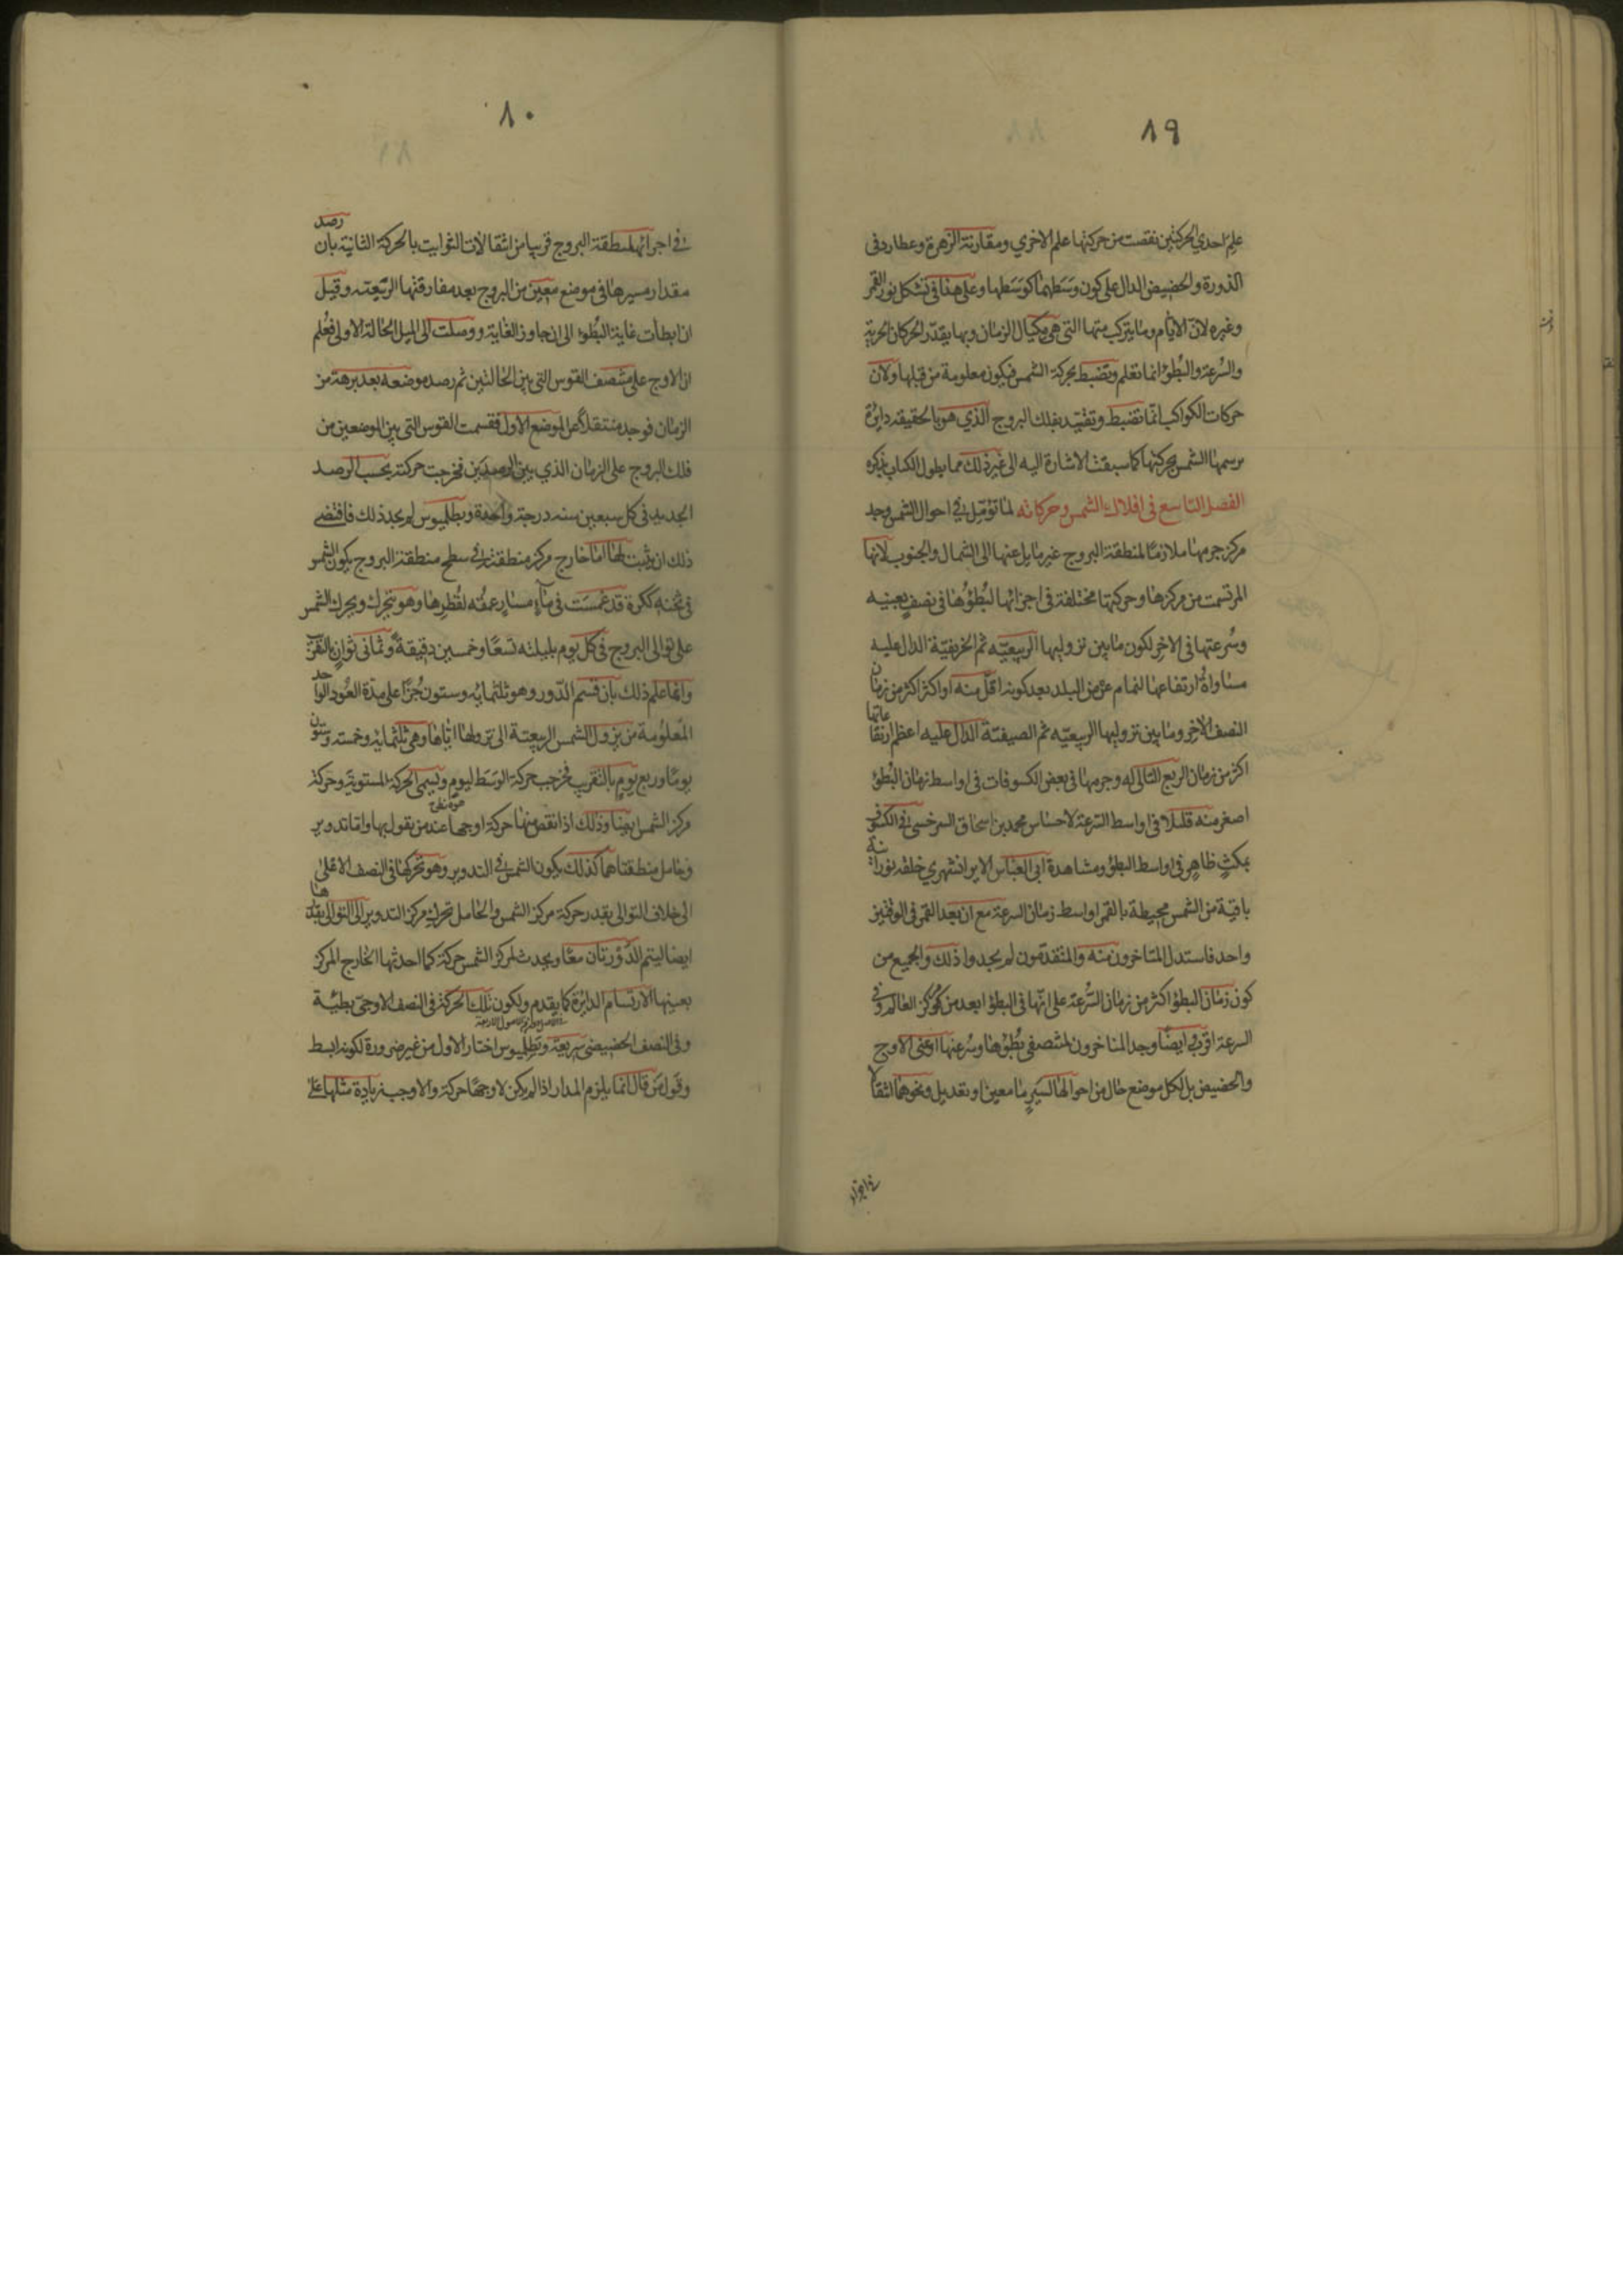 ٨٩
علم احدي الحركتين نقصت من حركتها علم الاخري ومقارنة الزهرة وعطارد في
الذورة والحضيض الدال على كون وسطهما كوسطها وعلى هذا في تشكل نور القمر
وغيره لان الايام وما يتركب منها التي هي مكيال الزمان وبها يقدر الحركات الجزئية
والسرعة والبطؤ انما تعلم وتضبط بحركة الشمس فيكون معلومة من قبلها ولان
حركات الكواكب انما تضبط وتقيد بفلك البروج الذي هو بالحقيقة دايرة
يرسمها الشمس بحركتها كما سبقت الاشارة اليه الى غير ذلك مما يطول الكتاب بذكره
الفصل التاسع في افلاك الشمس وحركاته لما تؤمل في احوال الشمس وجد
مركز جرمها ملازما لمنطقة البروج غير مايل عنها الى الشمال والجنوب لانها
المرتسمت من مركزها وحركتها مختلفة في اجزائها لبطؤها في نصف بعينه
وسرعتها في الاخر لكون ما بين نزوليها الربيعيه ثم الخريفية الدال عليه
مساواة ارتفاعها لتمام عرض البلد بعد كونه اقل منه او اكثر اكثر من زمان
النصف الاخر وما بين نزوليها الربيعيه ثم الصيفية الدال عليه اعظم ارتفاعاتها
اكثر من زمان الربع التالي له وجرمها في بعض الكسوفات في اواسط زمان البطؤ
اصغر منه قليلا في اواسط السرعة لاحساس محمد بن اسحاق السرخسي في الكسوف
بمكث ظاهر في اواسط البطؤ ومشاهدة ابي العباس الايرانشهري حلقة نورانية
باقية من الشمس محيطة بالقمر اواسط زمان السرعة مع ان بعد القمر في الوقتين
واحد فاستدل المتاخرون منه والمتقدمون لم يجدوا ذلك والجميع من
كون زمان البطؤ اكثر من زمان السرعة على انها في البطؤ ابعد من مركز العالم وفي
السرعة اقرب ايضا وجد المتاخرون لمنتصفي بطؤها وسرعتها اعني الاوج
والحضيض بل لكل موضع حال من احوالها لسير ما معين او تعديل ونحوهما انتقالا
في اجزاء
٨٠
في اجزائها لمنطقة البروج قريبا من انتقالات الثوابت بالحركة الثانية بان رصد
مقدار مسيرها في موضع معين من البروج بعد مفارقتها الربيعيه وقبل
ان ابطأت غاية البطؤ الى ان جاوز الغاية ووصلت الى الميل الحالة الاولى فعلم
ان الاوج على منتصف القوس التي بين الحالتين ثم رصد موضعه بعد برهة من
الزمان فوجد منتقلا عن الموضع الاول فقسمت القوس التي بين الموضعين من
فلك البروج على الزمان الذي بين الرصدين فخرجت حركته بحسب الرصد
الجديد في كل سبعين سنه درجة واحدة وبطلميوس لم يجد ذلك فاقتضى
ذلك ان يثبت لها اما خارج مركز منطقته في سطح منطقة البروج يكون الشمس
في ثخنه ككرة قد غمست في ماء مساو عمقه لقطرها وهو يتحرك ويحرك الشمس
على توالي البروج في كل يوم بليلته تسعا وخمسين دقيقة وثماني ثوان بالتقريب
وانما علم ذلك بان قسم الدور وهو ثلثمايه وستون جزا على مدة العود الواحد
المعلومة من نزول الشمس الربيعية الى نزولها اياها وهي ثلثمايه وخمسه وستون
يوما وربع يوم بالتقريب فخرجت حركة الوسط ليوم وتسمى الحركة المستوية وحركة
مركز الشمس ايضا وذلك اذا نقص منها حركة اوجها عند من يقول بها واما تدوير
وحامل منطقتاهما كذلك يكون الشمس في التدوير وهو يحركها في النصف الاعلى
الى خلاف التوالي بقدر حركة مركز الشمس والحامل يحرك مركز التدوير الى التوالي بقدرها
ايضا ليتم الدورتان معا ويحدث لمركز الشمس حركة كما احدثها الخارج المركز
بعينها الارتسام الدايرة كما يقدم ولكون تلك الحركة في النصف الاوجي بطيئة
وفي النصف الحضيضي سريعة وبطلميوس اختار الاول من غير ضرورة لكونه ابسط
وقول من قال انما يلزم المدار اذا لم يكن لاوجها حركة والا وجب زيادة مثلها على